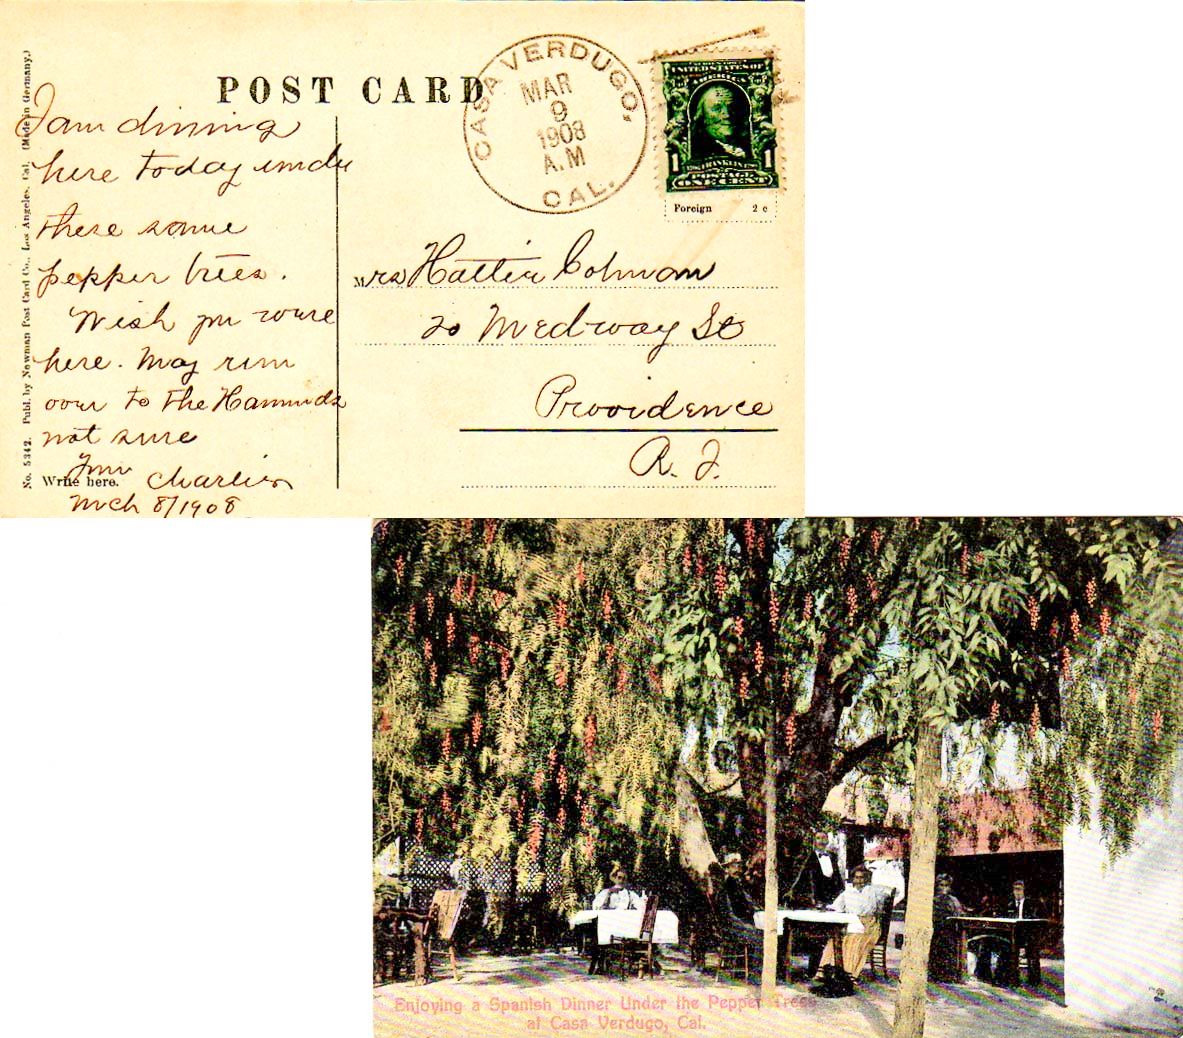 POST CARD
CASA VERDUGO,
MAR
9
1908
A.M
CAL.
UNITED STATES OF
AMERICA
1 FRANKLIN 1
POSTAGE
ONE CENT
Foreign 2 c
No. 5342. Publ. by Newman Post Card Co., Los Angeles, Cal. (Made in Germany.)
I am dining
here today under
these same
pepper trees.
Wish you were
here. May run
over to the
not sure
Write here.
Charlie
Mch 8/1908
Mrs Hattie Colman
20 Medway St
Providence
R. I.
Enjoying a Spanish Dinner Under the Pepper Trees
at Casa Verdugo, Cal.